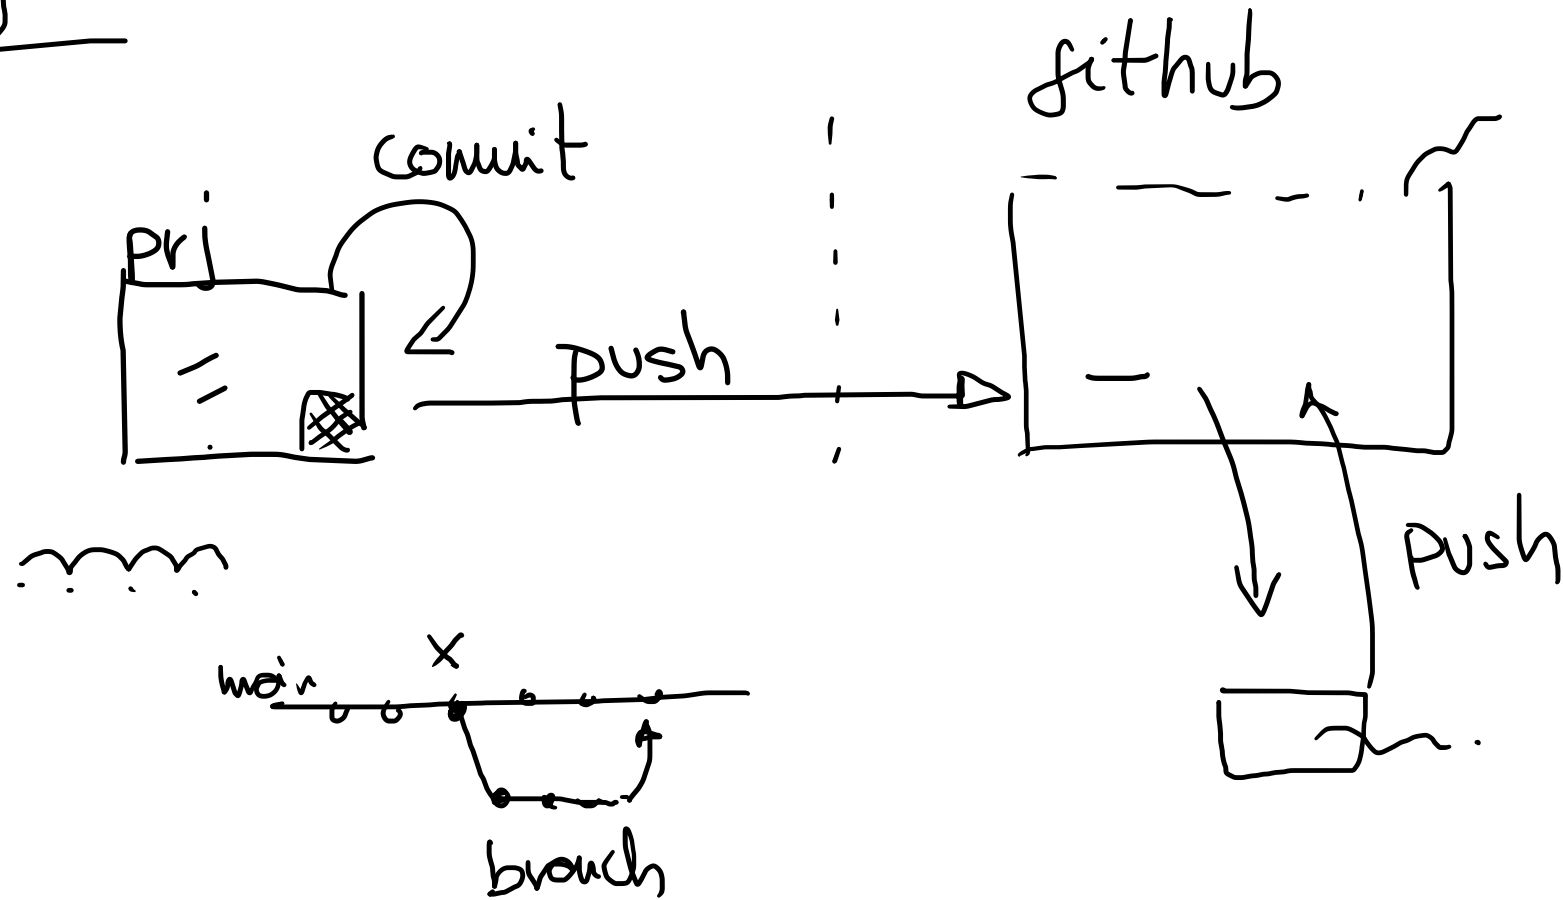 github
commit
pri
push
push
main
x
branch